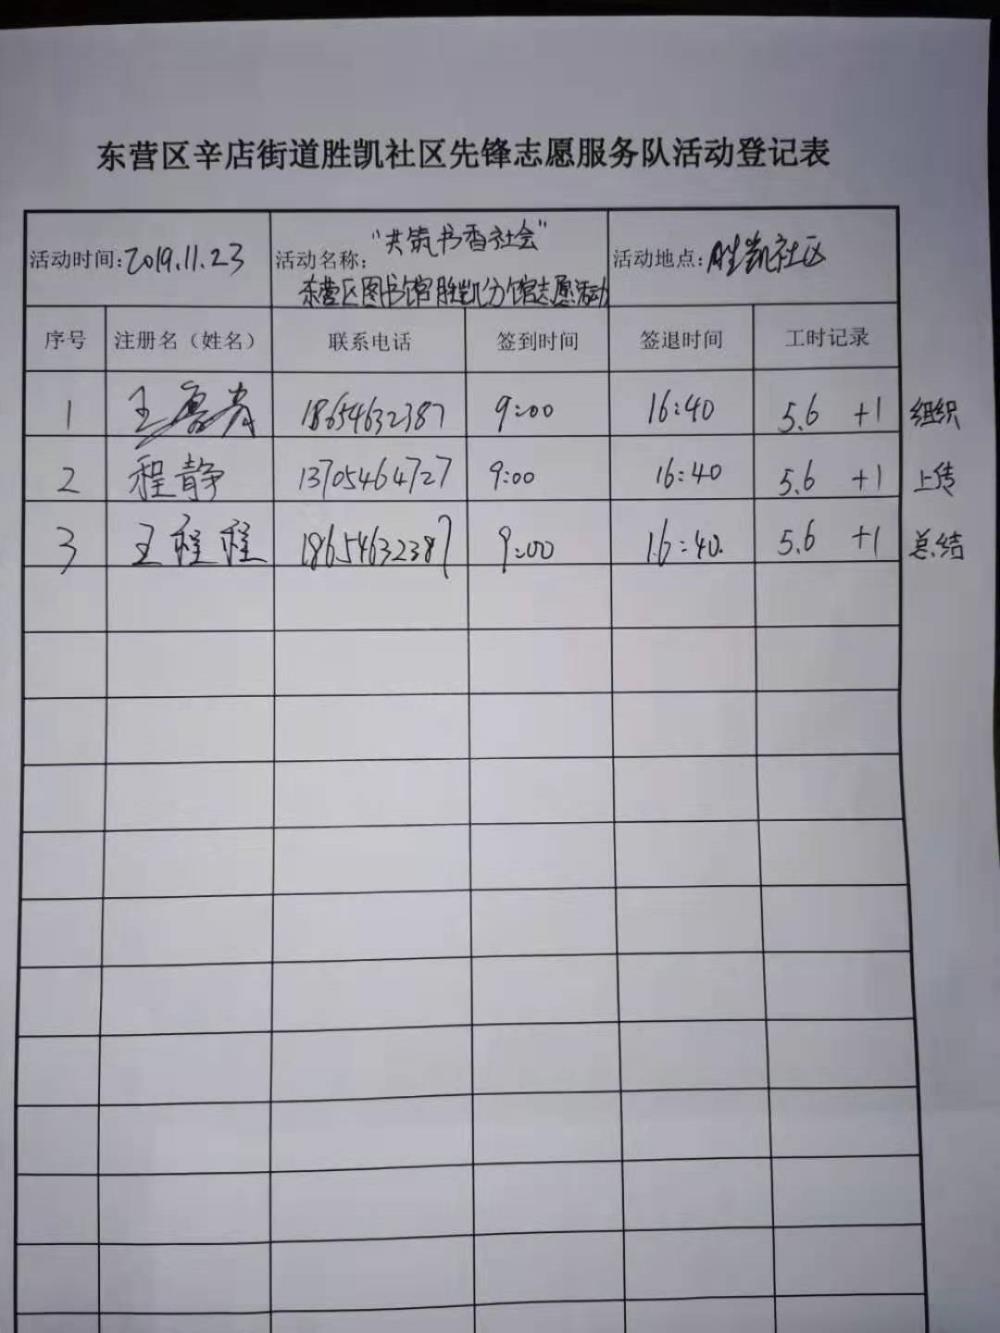 东营区辛店街道胜凯社区先锋志愿服务队活动登记表
活动时间:2019.11.23 活动名称:“共筑书香社会” 活动地点:胜凯社区
东营区图书馆胜凯分馆志愿活动
序号 注册名(姓名) 联系电话 签到时间 签退时间 工时记录
1 王 18654632387 9:00 16:40 5.6 +1 组织
2 程静 13705464727 9:00 16:40 5.6 +1 上传
3 王程程 18654632387 9:00 16:40. 5.6 +1 总结